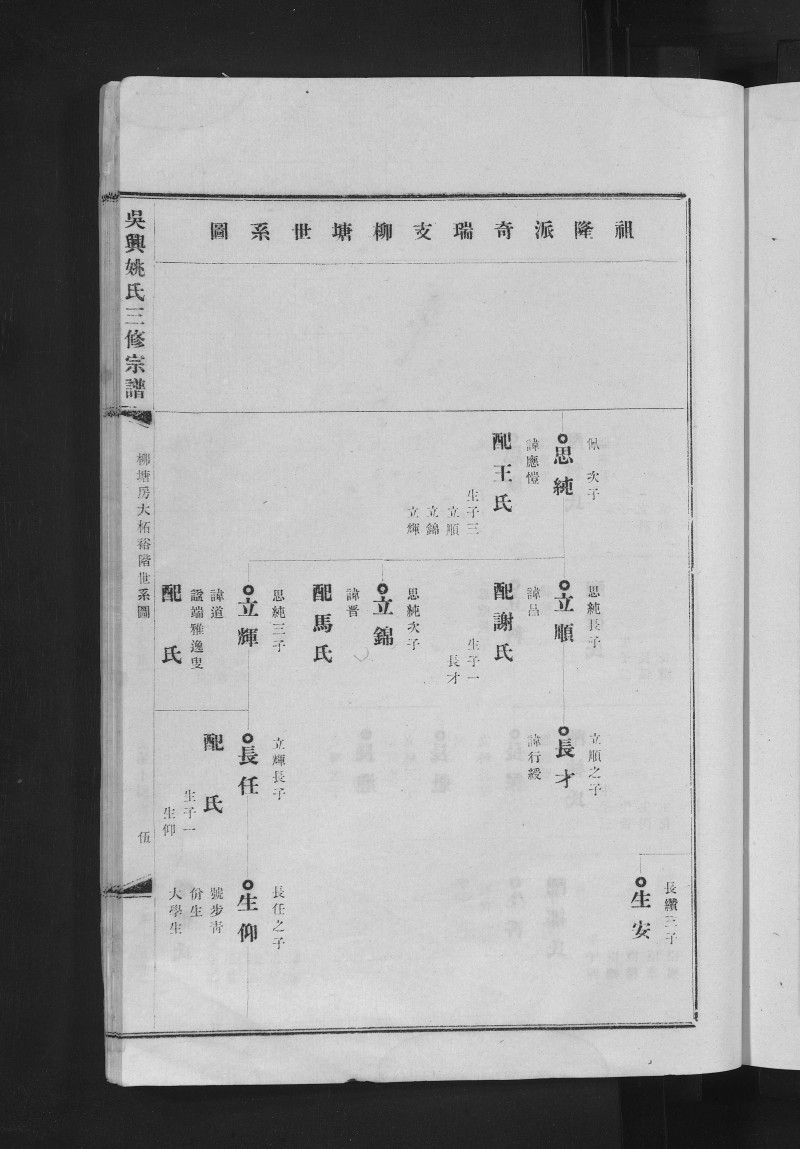 祖隆派奇瑞支柳塘世系圖
佩次子
思純
諱應愷
配王氏
生子三
立順
立錦
立輝
思純長子
立順
諱昌
配謝氏
生子一
長才
思純次子
立錦
諱晋
配馬氏
思純三子
立輝
諱道
諡端雅逸叟
配 氏
立順之子
長才
諱行綬
立輝長子
長任
配 氏
生子一
生仰
長纘三子
生安
長任之子
生仰
號步靑
佾生
大學生
吳興姚氏三修宗譜
柳塘房大柘裕階世系圖
伍